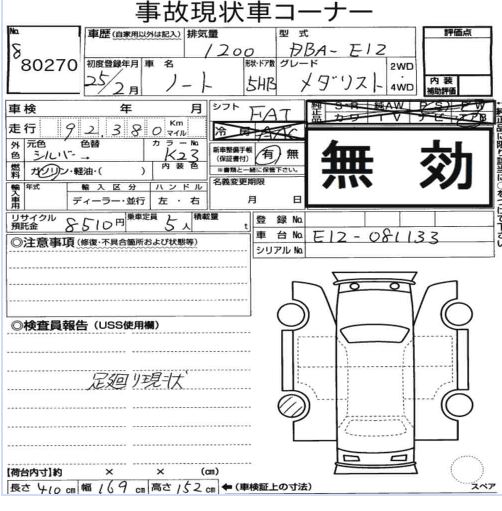 事故現状車コーナー
No. 8 80270
車歴(自家用以外は記入) 排気量 1200 型式 DBA-E12 評価点
初度登録年月 25/2月 車名 ノート 形状・ドア数 5HB グレード メダリスト 2WD・4WD 内装補助評価
車検 年 月 シフト FAT 純正品 S・R 純AW
走行 92,380 Km マイル 冷房 AAC カワ TV
外色 元色 シルバー 色替 カラーNo. K23 新車整備手帳(保証書付) 有 無
※書類と一緒に保管下さい。
燃料 ガソリン・軽油・( ) 内装色 名義変更期限
月 日
無効
輸入車用 年式 輸入区分 ディーラー・並行 ハンドル 左・右
リサイクル預託金 8510円 乗車定員 5人 積載量 t 登録No.
車台No. E12-081133
シリアルNo.
◎注意事項(修復・不具合箇所および状態等)
◎検査員報告(USS使用欄)
足廻り現状
【荷台内寸】約 × × (cm)
長さ 410 cm 幅 169 cm 高さ 152 cm ←(車検証上の寸法) スペア